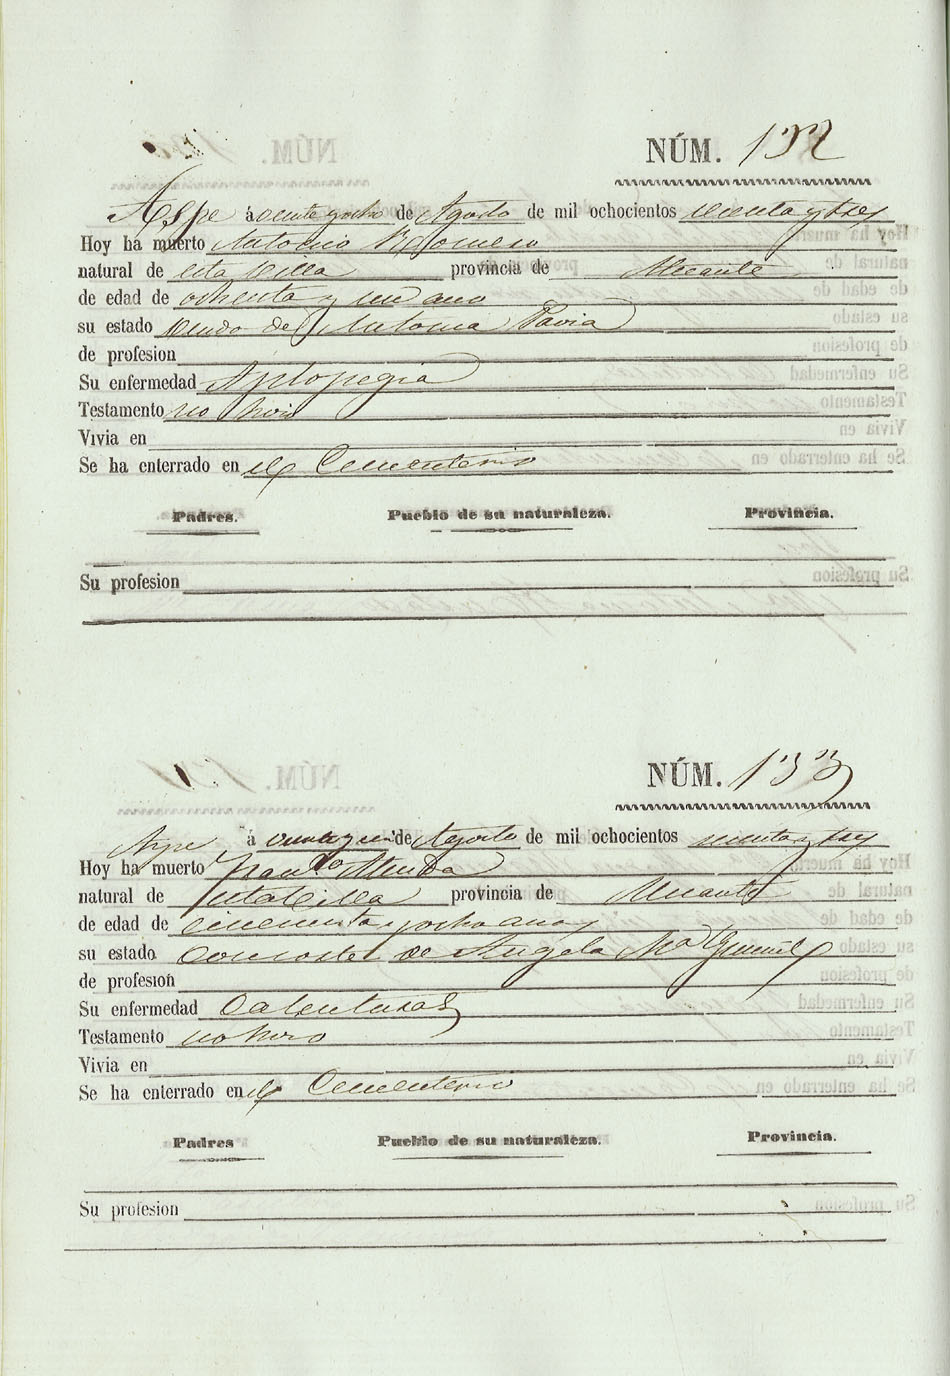 NÚM. 132
Aspe á veinte y ocho de Agosto de mil ochocientos sesenta y tres
Hoy ha muerto Antonio Romero
natural de esta Villa provincia de Alicante
de edad de ochenta y un ano
su estado Viudo de Antonia Pavia
de profesion
Su enfermedad Aplopegia
Testamento no hizo
Vivia en
Se ha enterrado en el Cementerio
Padres. Pueblo de su naturaleza. Provincia.
Su profesion
NÚM. 133
Aspe á de Agosto de mil ochocientos sesenta y tres
Hoy ha muerto Franco
natural de esta Villa provincia de Alicante
de edad de cincuenta y ocho anos
su estado Consorte de Angela Ma
de profesion
Su enfermedad Calenturas
Testamento no hizo
Vivia en
Se ha enterrado en el Cementerio
Padres Pueblo de su naturaleza. Provincia.
Su profesion